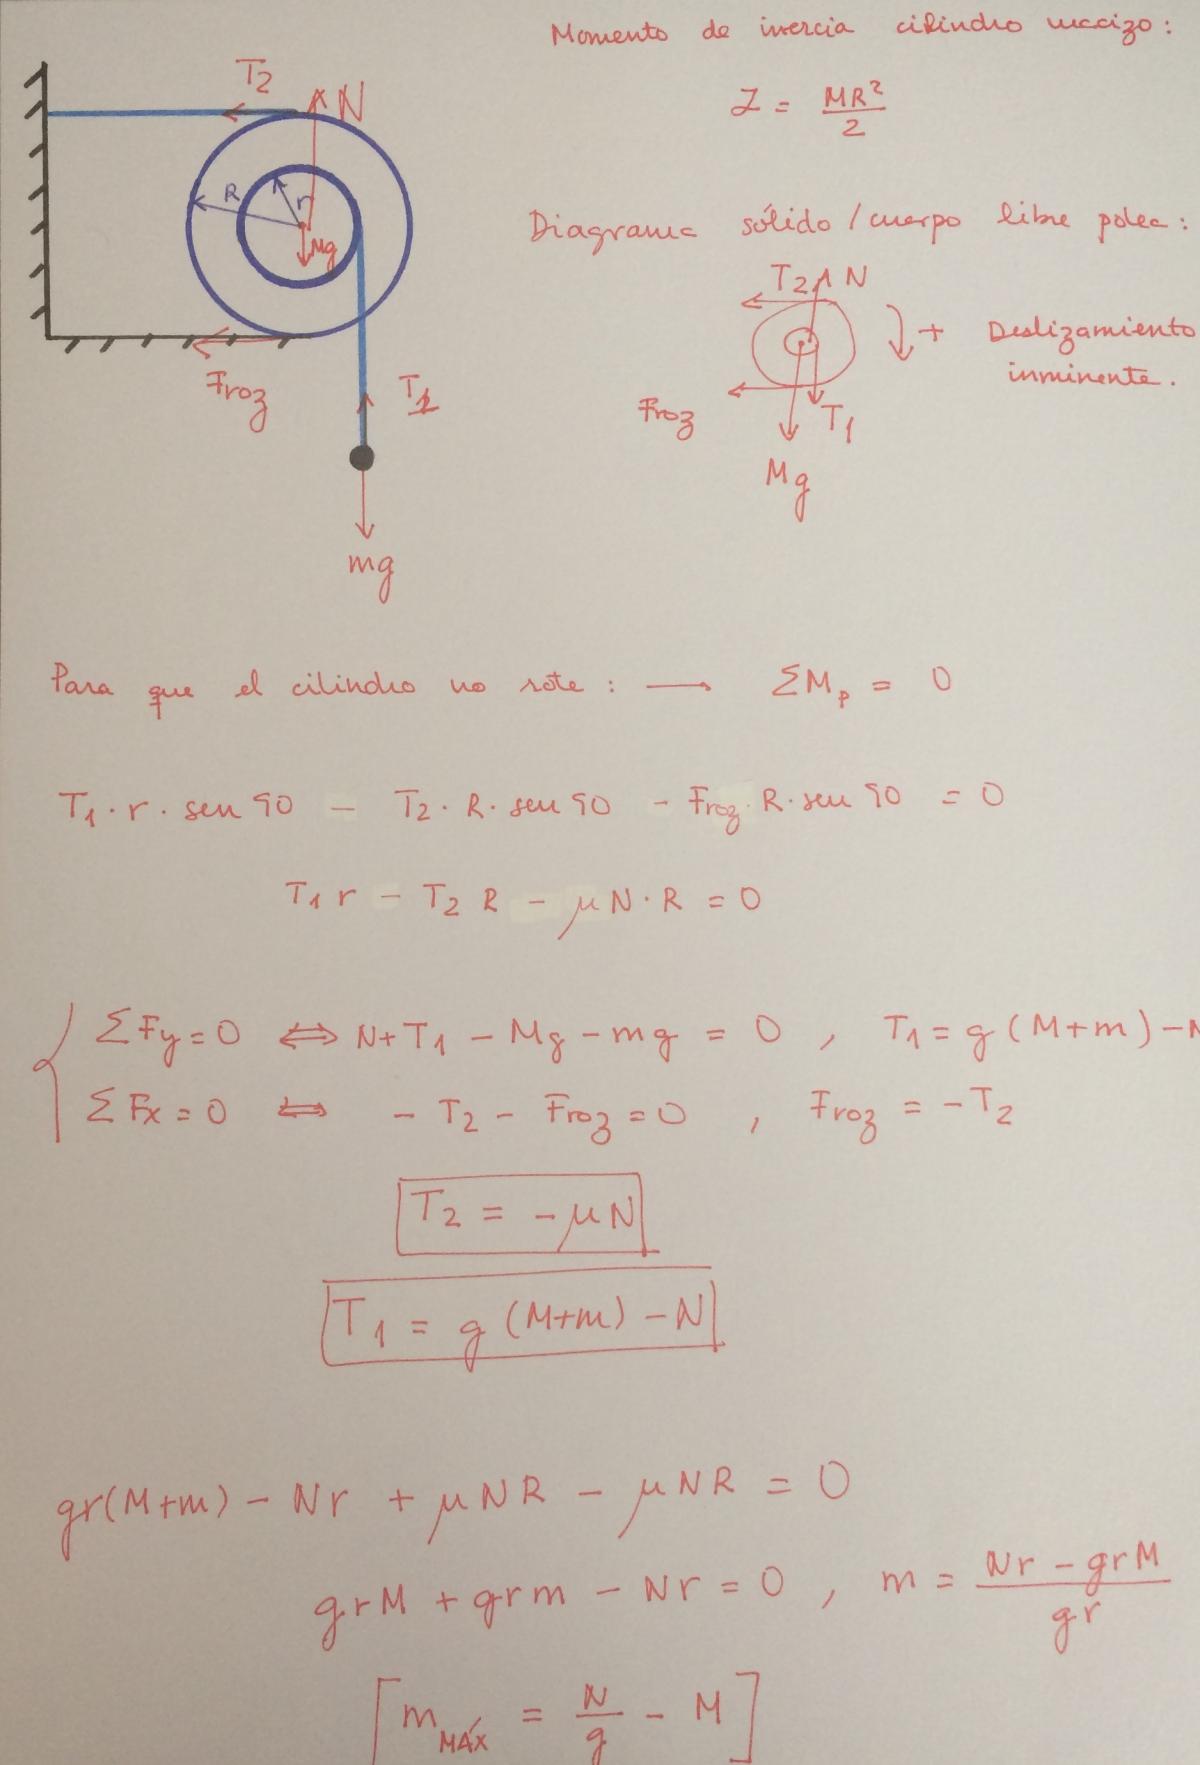 Momento de inercia cilindro macizo:
I = MR²/2
T2
N
R
r
Mg
Froz
T1
mg
Diagrama sólido / cuerpo libre polea:
T2 N
+ Deslizamiento
inminente.
Froz
T1
Mg
Para que el cilindro no rote: → ΣMp = 0
T1 · r · sen 90 - T2 · R · sen 90 - Froz · R · sen 90 = 0
T1 r - T2 R - μN·R = 0
ΣFy = 0 ⇔ N + T1 - Mg - mg = 0 , T1 = g (M+m) - N
ΣFx = 0 ⇔ - T2 - Froz = 0 , Froz = - T2
T2 = - μN
T1 = g (M+m) - N
gr(M+m) - Nr + μNR - μNR = 0
grM + grm - Nr = 0 , m = (Nr - grM)/gr
[m MÁX = N/g - M]